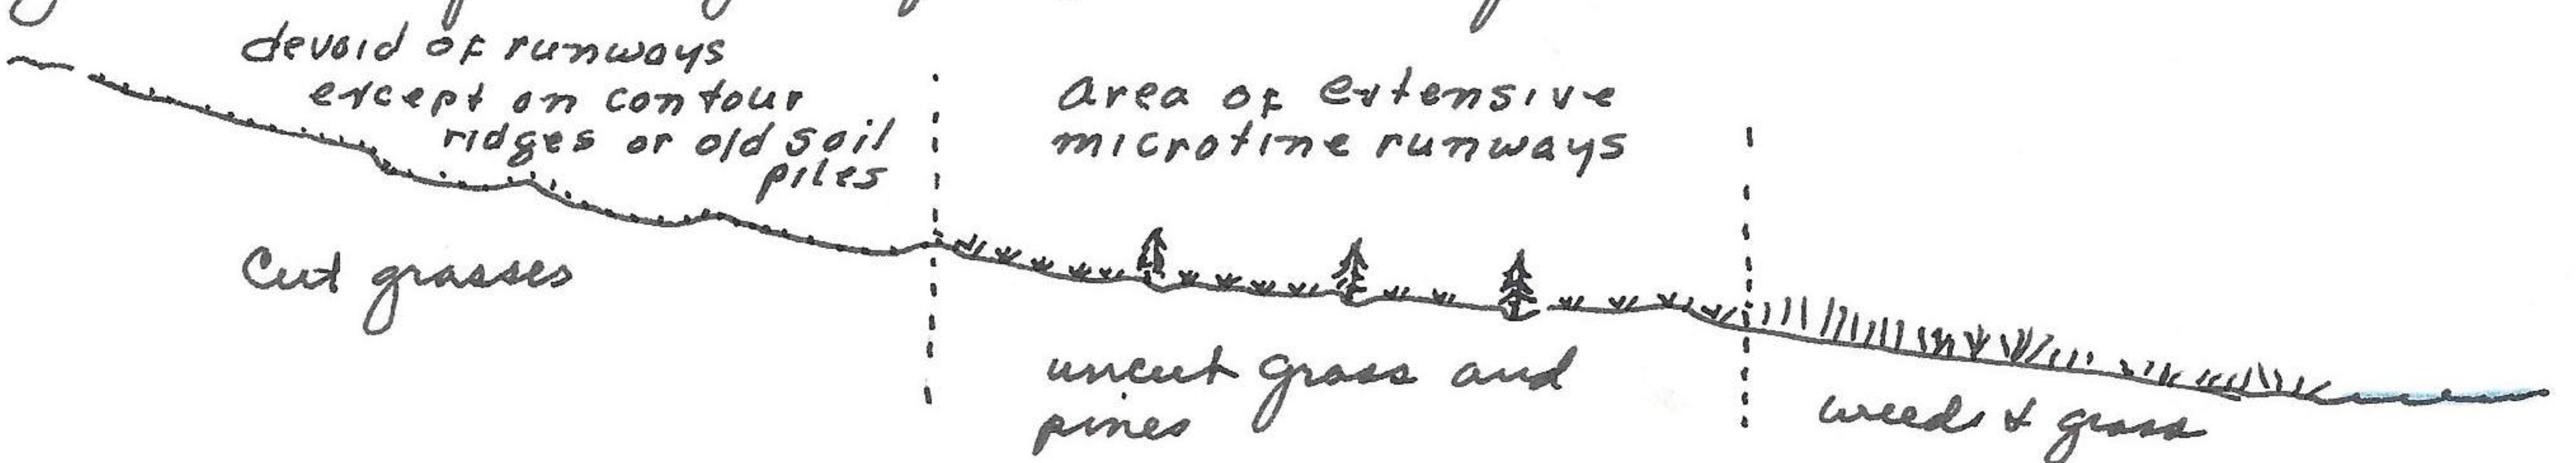 devoid of runways
except on contour
ridges or old soil
piles
area of extensive
microtine runways
Cut grasses
uncut grass and
pines
weeds & grass